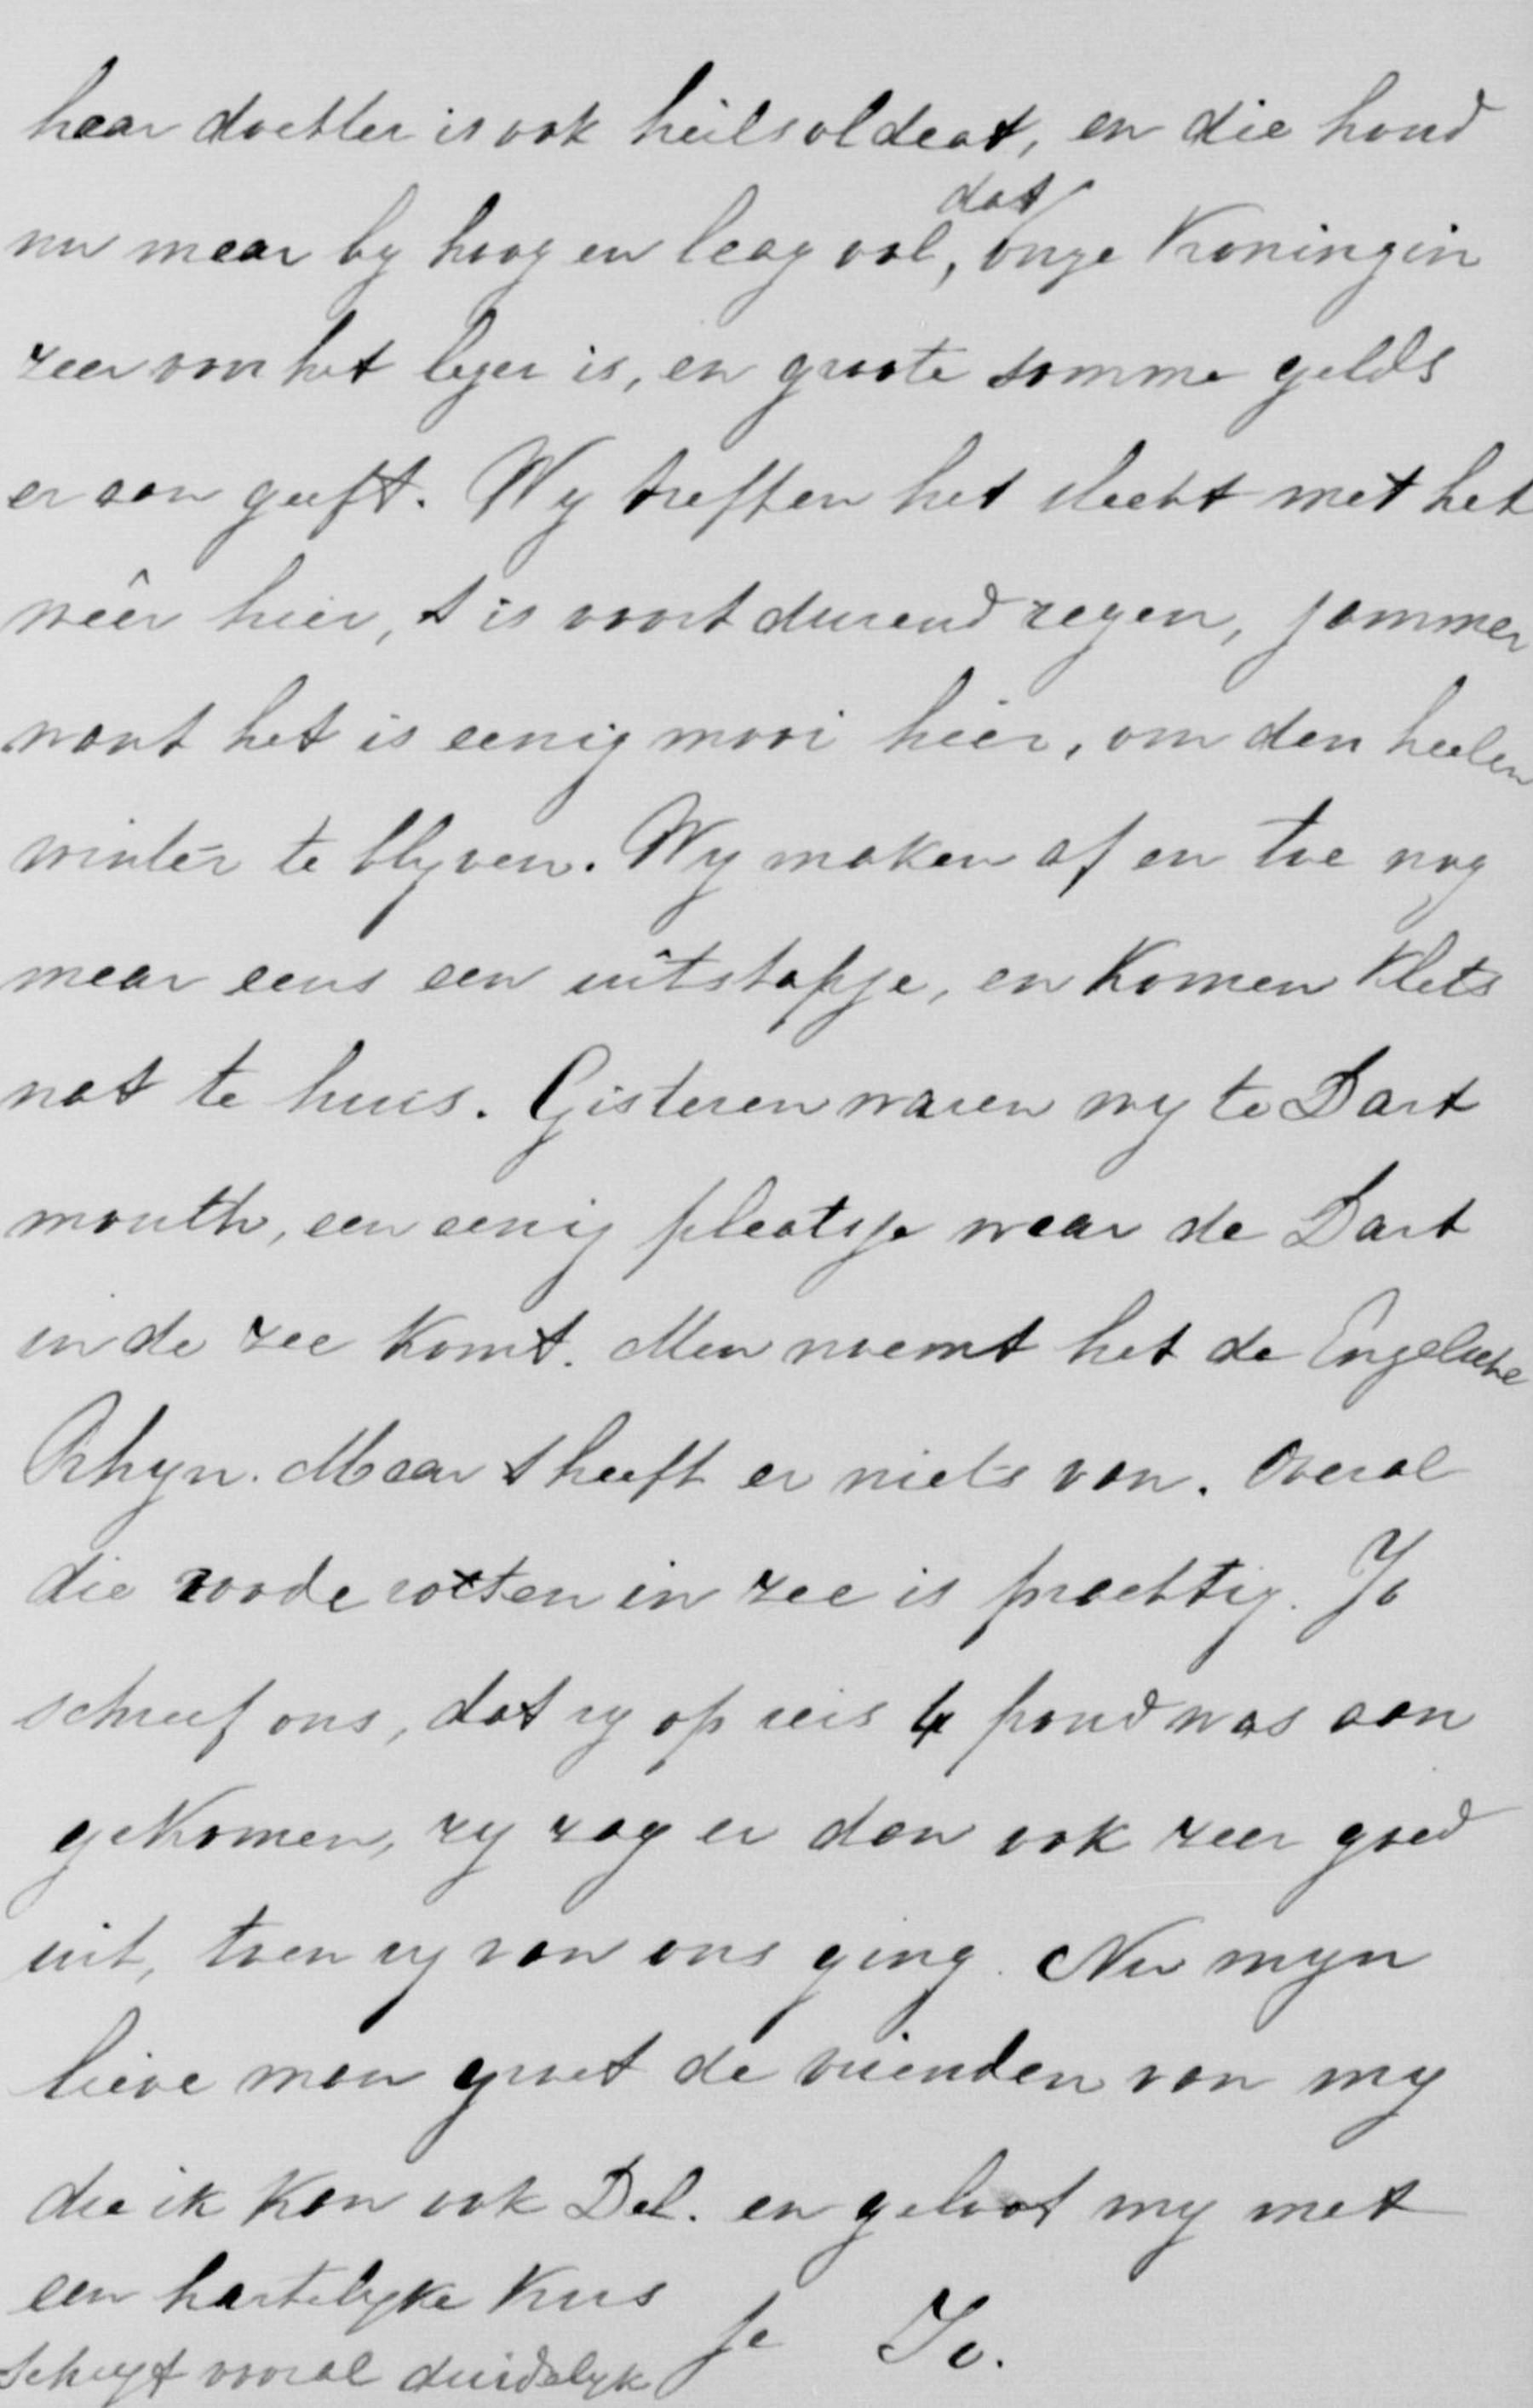 haar dochter is ook heilsoldaat, en die houd
dat
nu maar by hoog en laag vol, onze Koningin
zeer voor het leger is, en groote somme gelds
er aan geeft. Wy treffen het slecht met het
weêr hier, t is voortdurend regen, jammer
want het is eenig mooi hier, om den heelen
winter te blyven. Wy maken af en toe nog
maar eens een uitstapje, en komen klets
nat te huis. Gisteren waren wy te Dart
mouth, een eenig plaatsje waar de Dart
in de zee komt. Men noemt het de Engelsche
Rhyn. Maar t heeft er niets van. Overal
die roode rotsen in zee is prachtig. Jo
schreef ons, dat zy op reis 4 pond was aan
gekomen, zy zag er dan ook zeer goed
uit, toen zy van ons ging. Nu myn
lieve man groet de vrienden van my
die ik ken ook Del. en geloof my met
een hartelyke kus
je Jo.
Schryf vooral duidelyk